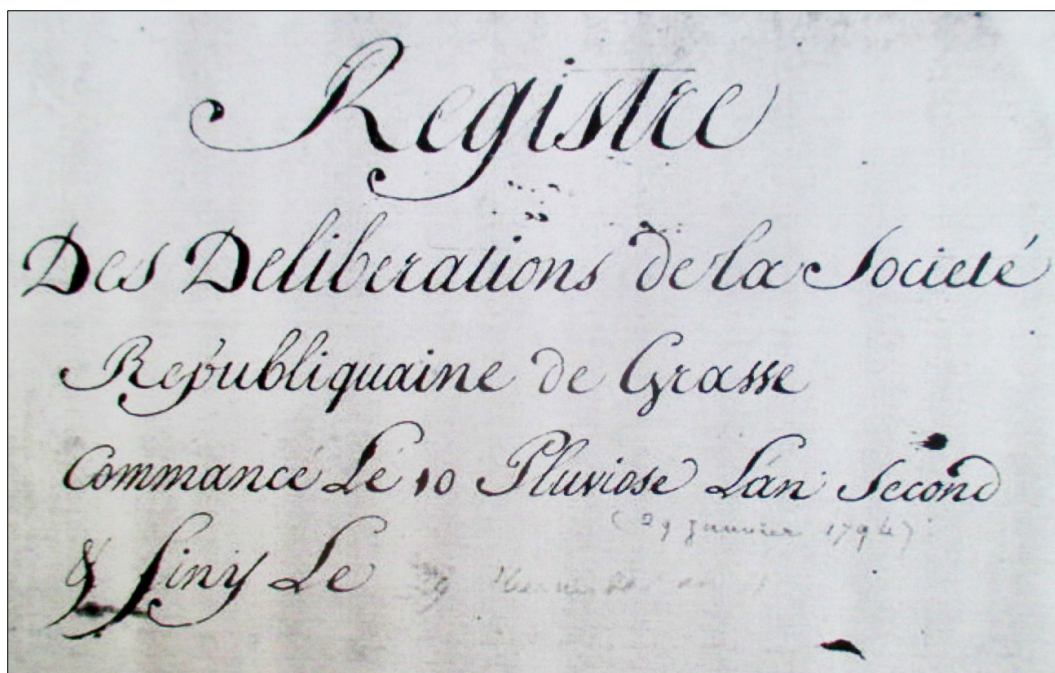 Registre
Des Deliberations de la Societé
Republiquaine de Grasse
Commancé Le 10 Pluviose L'an Second
(29 janvier 1794)
& finy Le 29